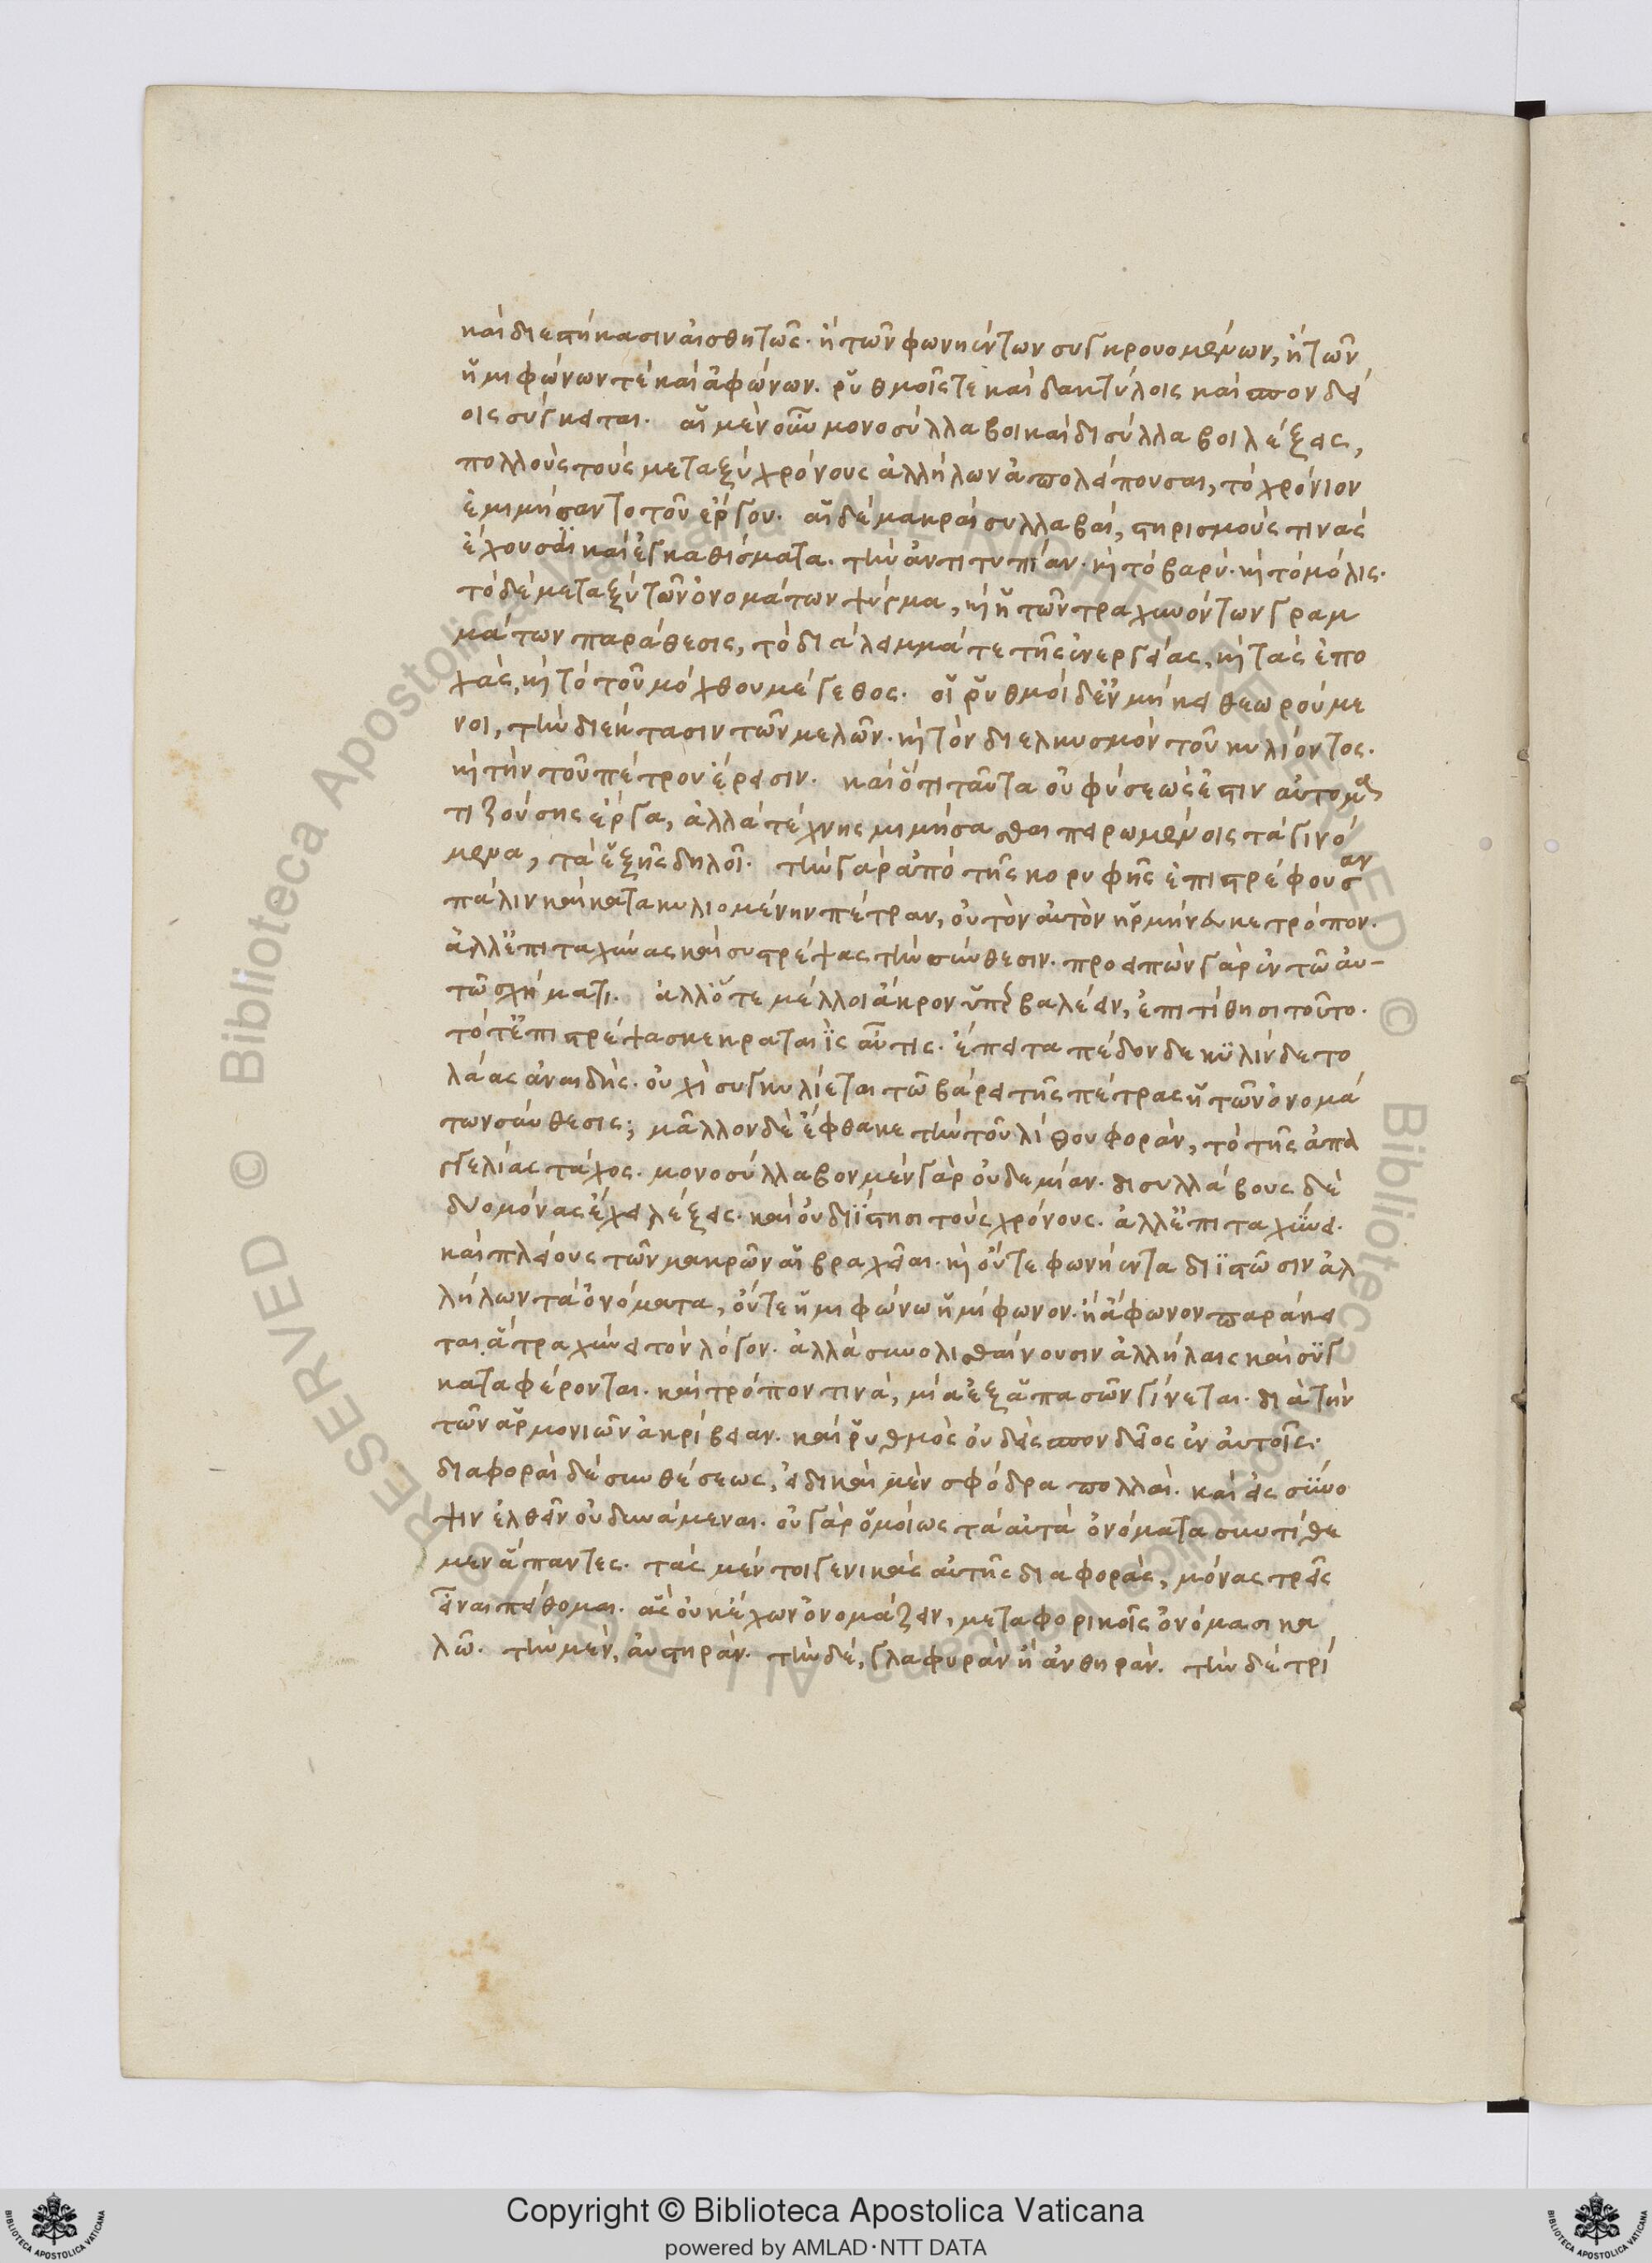 καὶ διεστήκασιν αἰσθητῶς· ἢ τῶν φωνηέντων συγκρουομένων, ἢ τῶν
ἡμιφώνων τὲ καὶ ἀφώνων. ῥυθμοῖς τε καὶ δακτύλοις καὶ σπονδεί
οις σύγκειται. αἱ μὲν οὖν μονοσύλλαβοι καὶ δισύλλαβοι λέξεις,
πολλοὺς τοὺς μεταξὺ χρόνους ἀλλήλων ἀπολείπουσαι, τὸ χρόνιον
ἐμιμήσαντο τοῦ ἔργου. αἱ δὲ μακραὶ συλλαβαὶ, στηρισμούς τινας
ἔχουσαι καὶ ἐγκαθίσματα. τὴν ἀντιτυπίαν. καὶ τὸ βαρύ. καὶ τὸ μόλις.
τὸ δὲ μεταξὺ τῶν ὀνομάτων ψύγμα, καὶ ἡ τῶν τραχυνόντων γραμ
μάτων παράθεσις, τὸ διάλειμμά τε τῆς ἐνεργείας, καὶ τὰς ἐπο
χὰς, καὶ τὸ τοῦ μόχθου μέγεθος. οἱ ῥυθμοὶ δ' ἐν μήκει θεωρούμε
νοι, τὴν διέκτασιν τῶν μελῶν. καὶ τὸν διελκυσμὸν τοῦ κυλίοντος.
καὶ τὴν τοῦ πέτρου ἔρεισιν. καὶ ὅτι ταῦτα οὐ φύσεώς ἐστιν αὐτομα
τιζούσης ἔργα, ἀλλὰ τέχνης μιμήσασθαι πειρωμένοις τὰ γινό
μενα, τὰ ἑξῆς δηλοῖ. τὴν γὰρ ἀπὸ τῆς κορυφῆς ἐπιστρέφουσαν
πάλιν καὶ κατακυλιομένην πέτραν, οὐ τὸν αὐτὸν ἡρμήνευκε τρόπον.
ἀλλ' ἐπιταχύνας καὶ συστρέψας τὴν σύνθεσιν. προειπὼν γὰρ ἐν τῷ αὐ-
τῷ σχήματι. ἀλλ' ὅτε μέλλοι ἄκρον ὑπερβαλέειν, ἐπιτίθησι τοῦτο.
τότ' ἐπιστρέψασκε κραταιῒς αὖτις. ἔπειτα πέδονδε κυλίνδετο
λᾶας ἀναιδής. οὐχὶ συγκυλίεται τῷ βάρει τῆς πέτρας ἡ τῶν ὀνομά
των σύνθεσις; μᾶλλον δὲ ἔφθακε τὴν τοῦ λίθου φορὰν, τὸ τῆς ἀπαγ
γελίας τάχος. μονοσύλλαβον μὲν γὰρ οὐδεμίαν. δισυλλάβους δὲ
δύο μόνας ἔχει λέξεις. καὶ οὐ διΐστησι τοὺς χρόνους. ἀλλ' ἐπιταχύνει.
καὶ πλείους τῶν μακρῶν αἱ βραχεῖαι. καὶ οὔτε φωνήεντα διϊστῶσιν ἀλ
λήλων τὰ ὀνόματα, οὔτε ἡμιφώνω ἡμίφωνον. ἢ ἄφωνον παράκει
ται, ἃ τραχύνει τὸν λόγον. ἀλλὰ συνολισθαίνουσιν ἀλλήλαις καὶ συγ
καταφέρονται. καὶ τρόπον τινὰ, μία ἐξ ἁπασῶν γίνεται. διὰ τὴν
τῶν ἁρμονιῶν ἀκρίβειαν. καὶ ῥυθμὸς οὐδεὶς σπονδεῖος ἐν αὐτοῖς.
διαφοραὶ δὲ συνθέσεως, εἰδικαὶ μὲν σφόδρα πολλαί. καὶ εἰς σύνο
ψιν ἐλθεῖν οὐ δυνάμεναι. οὐ γὰρ ὁμοίως τὰ αὐτὰ ὀνόματα συντίθε
μεν ἅπαντες. τὰς μέν τοι γενικὰς αὐτῆς διαφορὰς, μόνας τρεῖς
εἶναι πείθομαι. ἃς οὐκ ἔχων ὀνομάζειν, μεταφορικοῖς ὀνόμασι κα
λῶ. τὴν μὲν, αὐστηράν. τὴν δὲ, γλαφυρὰν ἢ ἀνθηράν. τὴν δὲ τρί
Copyright © Biblioteca Apostolica Vaticana
powered by AMLAD·NTT DATA